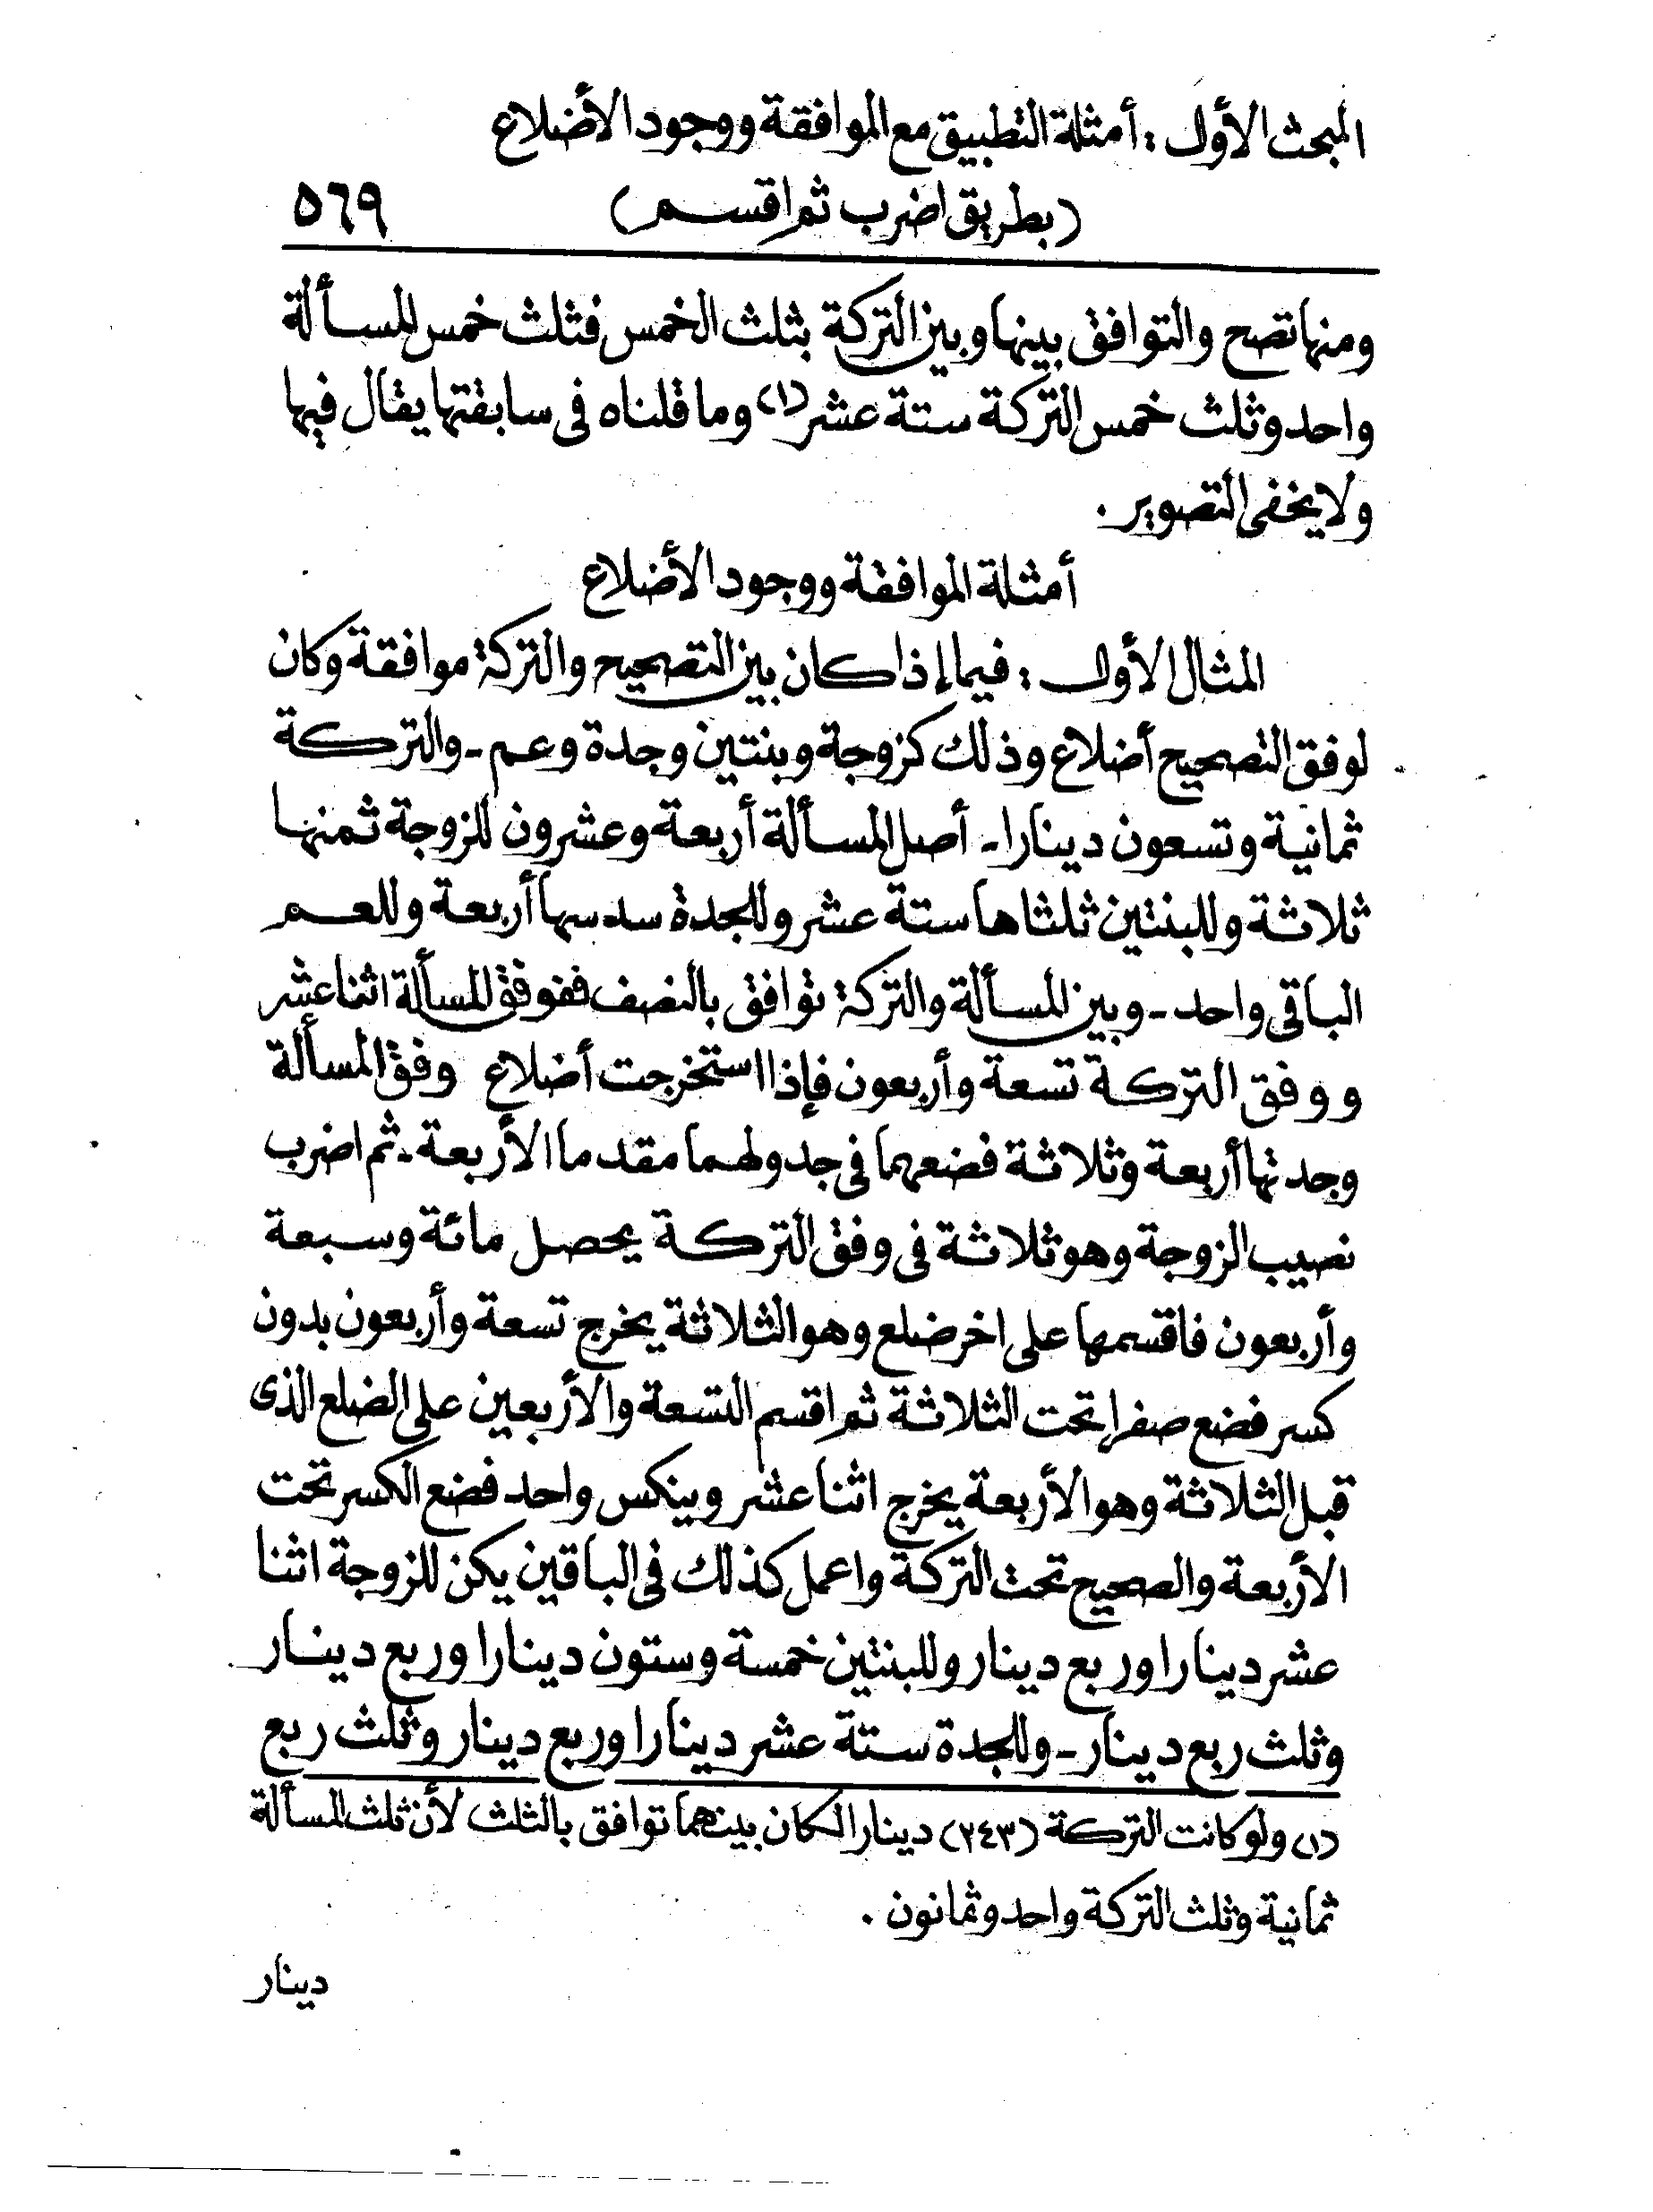 المبحث الأول : أمثلة التطبيق مع الموافقة ووجود الأضلاع
(بطريق اضرب ثم اقسم)
٥٦٩
ومنها تصح والتوافق بينها وبين التركة بثلث الخمس فثلث خمس المسألة
واحد وثلث خمس التركة ستة عشر (١) وما قلناه فى سابقتها يقال فيها
ولا يخفى التصوير .
أمثلة الموافقة ووجود الأضلاع
المثال الأول : فيما إذا كان بين التصحيح والتركة موافقة وكان
لوفق التصحيح أضلاع وذلك كزوجة وبنتين وجدة وعم - والتركة
ثمانية وتسعون دينارا - أصل المسألة أربعة وعشرون للزوجة ثمنها
ثلاثة وللبنتين ثلثاها ستة عشر وللجدة سدسها أربعة وللعم
الباقى واحد - وبين المسألة والتركة توافق بالنصف ففوفق المسألة اثنا عشر
ووفق التركة تسعة وأربعون فإذا استخرجت أضلاع وفق المسألة
وجدتها أربعة وثلاثة فضعهما فى جدولهما مقدما الأربعة - ثم اضرب
نصيب الزوجة وهو ثلاثة فى وفق التركة يحصل مائة وسبعة
وأربعون فاقسمها على اخر ضلع وهو الثلاثة يخرج تسعة وأربعون بدون
كسر فضع صفرا تحت الثلاثة ثم اقسم التسعة والأربعين على الضلع الذى
قبل الثلاثة وهو الأربعة يخرج اثنا عشر وينكس واحد فضع الكسر تحت
الأربعة والصحيح تحت التركة واعمل كذلك فى الباقين يكن للزوجة اثنا
عشر دينارا وربع دينار وللبنتين خمسة وستون دينارا وربع دينار
وثلث ربع دينار - وللجدة ستة عشر دينارا وربع دينار وثلث ربع
(١) ولو كانت التركة (٢٤٣) دينارا لكان بينهما توافق بالثلث لأن ثلث المسألة
ثمانية وثلث التركة واحد وثمانون .
دينار